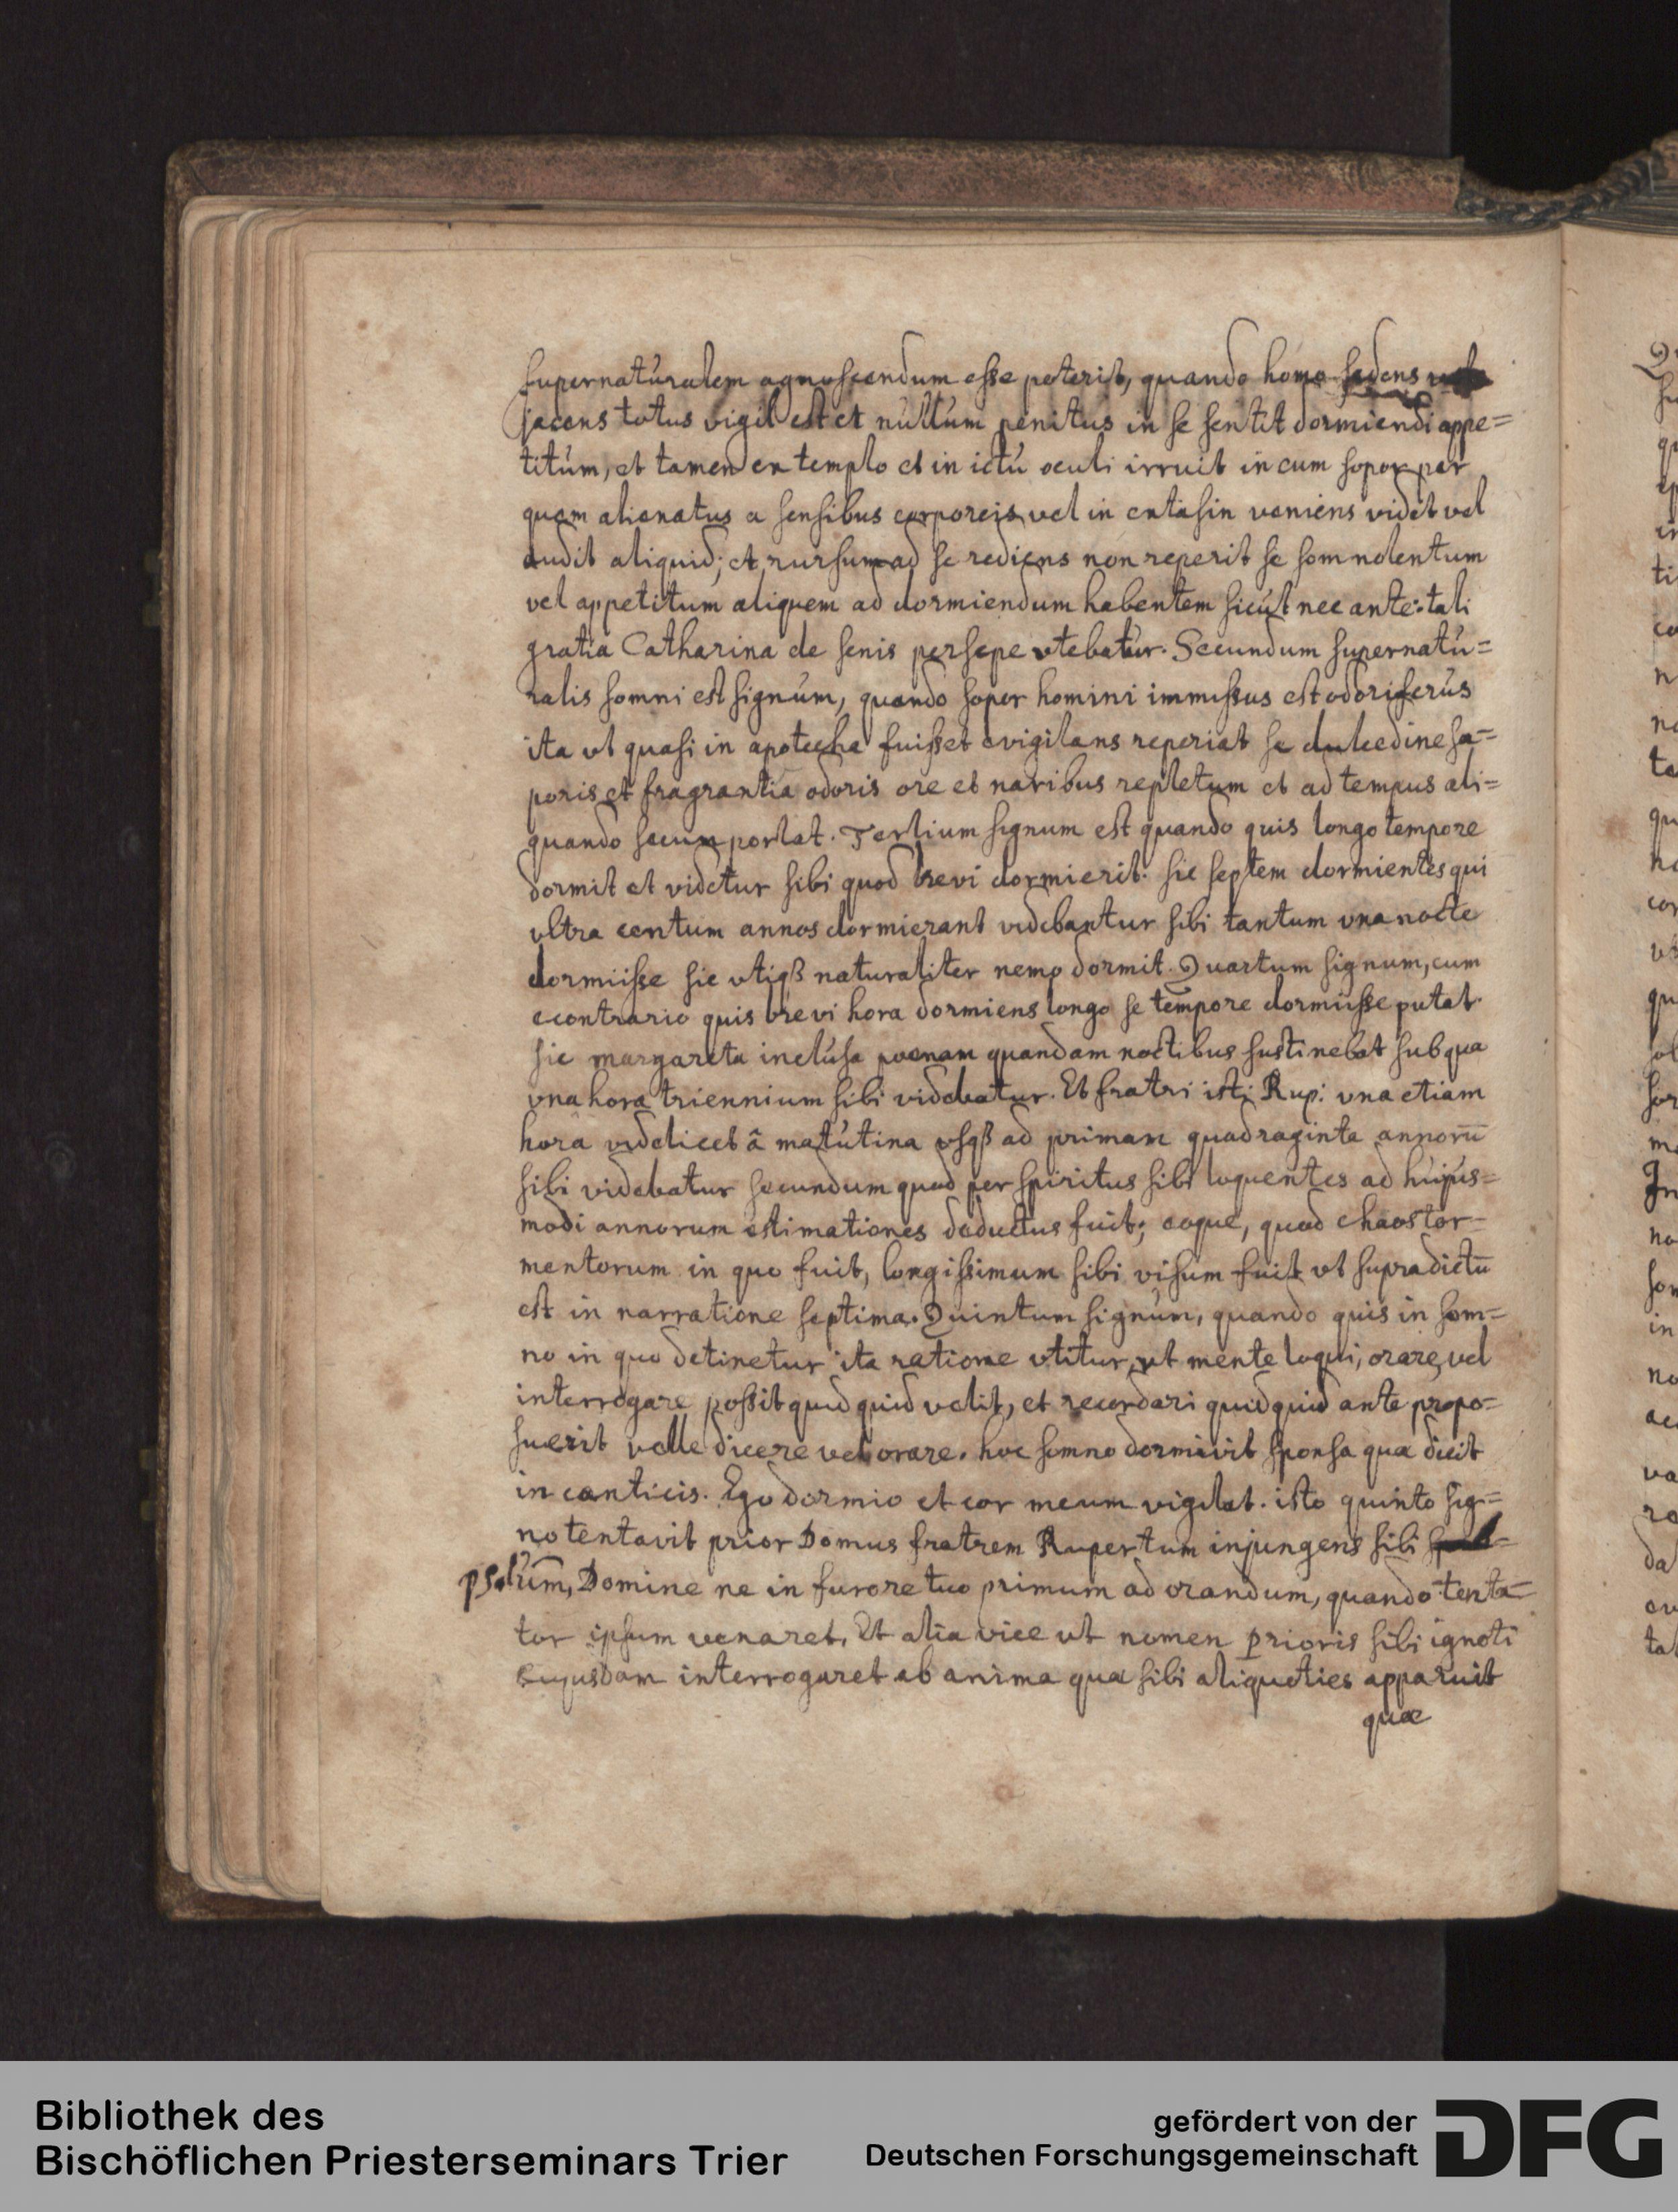 supernaturalem agnoscendum esse poterit, quando homo sedens
jacens totus vigil est et nullum penitus in se sentit dormiendi appe=
titúm, et tamen ex templo et in ictú oculi irruit in eum sopor per
quem alienatus a sensibus corporeis vel in extasin veniens videt vel
audit aliquid; et rursum ad se rediens non reperit se somnolentum
vel appetitum aliquem ad dormiendum habentem sicút nec ante: tali
gratia Catharina de senis persepe vtebatúr. Secundum supernatú=
ralis somni est signúm, quando sopor homini immissus est odoriferús
ita vt quasi in apotecha fuisset evigilans reperiat se dulcedine sa=
poris et fragrantia odoris ore et naribus repletum et ad tempus ali=
quando secum portat. Tertium signum est quando quis longo tempore
dormit et videtur sibi quod brevi dormierit: sic septem dormientes qui
vltra centum annos dormierant videbantur sibi tantum vna nocte
dormiisse sic vtiqß naturaliter nemo dormit. Quartum signum, cum
econtrario quis brevi hora dormiens longo se tempore dormiisse putat.
sic margareta inclúsa poenam quandam noctibus sustinebat sub qua
vna hora triennium sibi videbatur. Et fratri isti Rup: vna etiam
hora videlicet â matútina vsqß ad primam quadraginta annorū
sibi videbatur secundum quod per spiritus sibi loquentes ad hújus=
modi annorum estimationes deductus fuit; eoque, quod chaos tor-
mentorum in quo fuit, longissimum sibi visum fuit vt supradictū
est in narratione septima. Quintum signúm, quando quis in som=
no in quo detinetur ita ratione vtitur, vt mente loqui, orare, vel
interrogare possit quidquid velit, et recordari quidquid ante propo=
suerit velle dicere vel orare. hoc somno dormivit sponsa quæ dicit
in canticis. Ego dormio et cor meum vigilat. isto quinto sig=
no tentavit prior Domus fratrem Rupertum injungens sibi
psalúm, Domine ne in furore tuo primum ad orandum, quando tenta-
tor ipsum venaret. Et alia vice vt nomen prioris sibi ignoti
cujusdam interrogaret ab anima quæ sibi aliquoties apparuit
quæ
Bibliothek des
Bischöflichen Priesterseminars Trier
gefördert von der
Deutschen Forschungsgemeinschaft
DFG